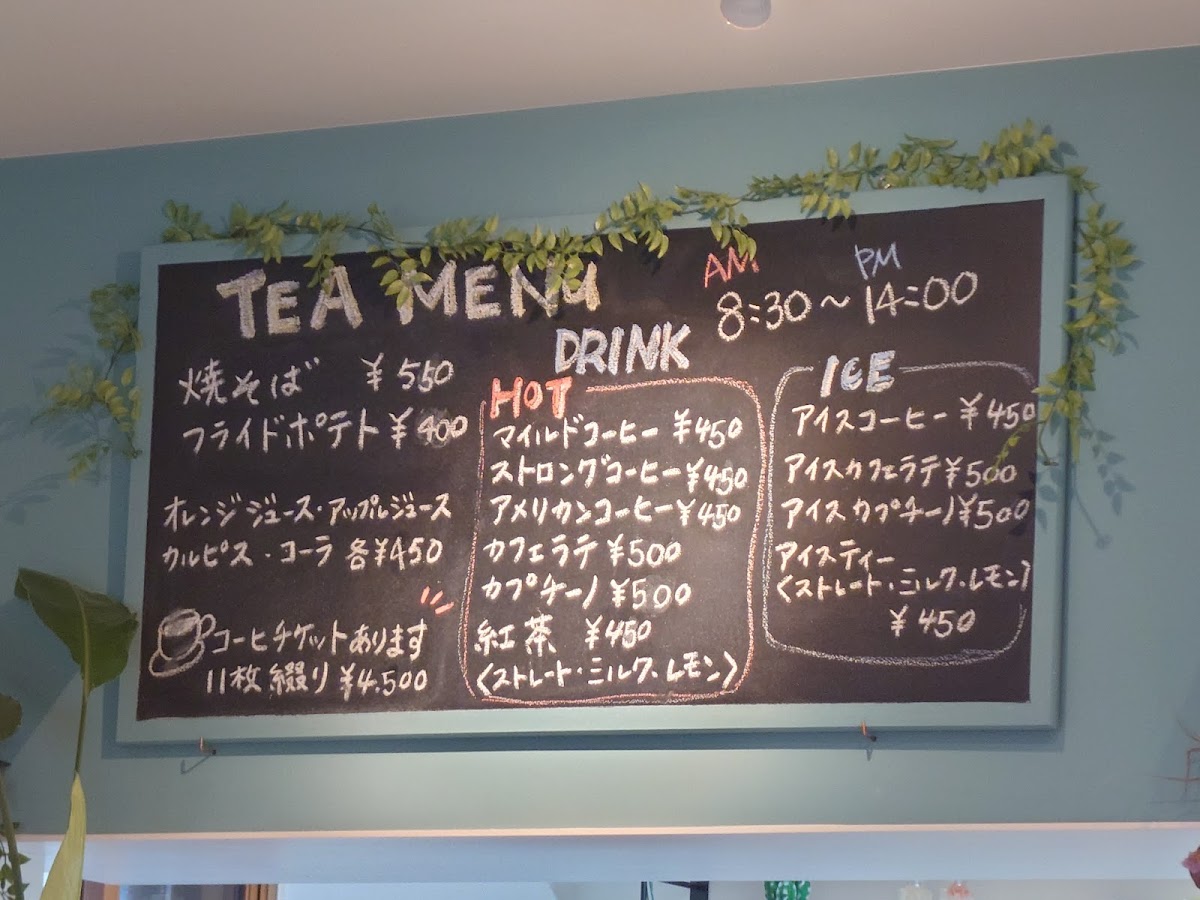 TEA MENU
AM PM
8:30～14:00
焼そば ¥550
フライドポテト ¥400
オレンジジュース・アップルジュース
カルピス・コーラ 各¥450
コーヒチケットあります
11枚綴り ¥4.500
DRINK
HOT
マイルドコーヒー ¥450
ストロングコーヒー ¥450
アメリカンコーヒー ¥450
カフェラテ ¥500
カプチーノ ¥500
紅茶 ¥450
〈ストレート・ミルク・レモン〉
ICE
アイスコーヒー ¥450
アイスカフェラテ ¥500
アイスカプチーノ ¥500
アイスティー
〈ストレート・ミルク・レモン〉
¥450